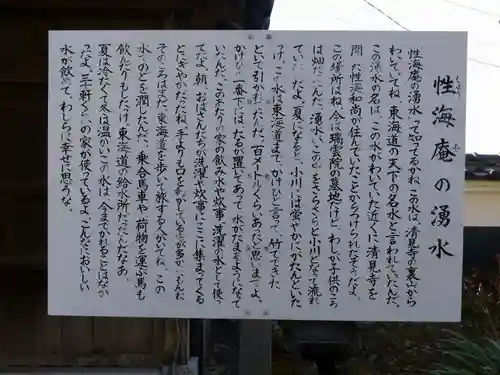 性海庵の湧水
性海庵の湧水って知ってるかね、この水は、清見寺の裏山から
わいていてね、東海道の天下の名水と言われていたんだ。
この湧水の名は、この水がわいていた近くに清見寺を
開いた性海和尚が住んでいたことからつけられたそうだよ。
この場所はね、今は瑞雲院の墓地だけど、わしが子供のころ
は畑だったんだ。湧水はこの下をさらさらと小川となって流れ
ていたんだよ。夏になると、小川には蛍がいたんだよ
この水は東海道まで、かけひと言って、竹でできた
といで引かれていたんだ。百メートルくらいあったと思いますよ。
かけひの一番下には、たるが置いてあって、水がたまるようになって
いたんだ。このあたりの家の飲み水や炊事、洗濯の水として使っ
てたなあ。朝、おばさんたちが洗濯や炊事にここに集まってくる
と、にぎやかだったね。手よりも口を動かしている方が多かったもんね。
そのころはまだ、東海道を歩いて旅する人がいてね、この
水でのどを潤したんだ、乗合馬車や荷物を運ぶ馬も
飲んだりもしたっけ。東海道の給水所だったんだなあ
夏は冷たくて冬は温かいこの水は、今までかれることはなか
ったよ。三軒くらいの家が使っているよ。こんなにおいしい
水が飲めて、わしらは幸せに思うな。